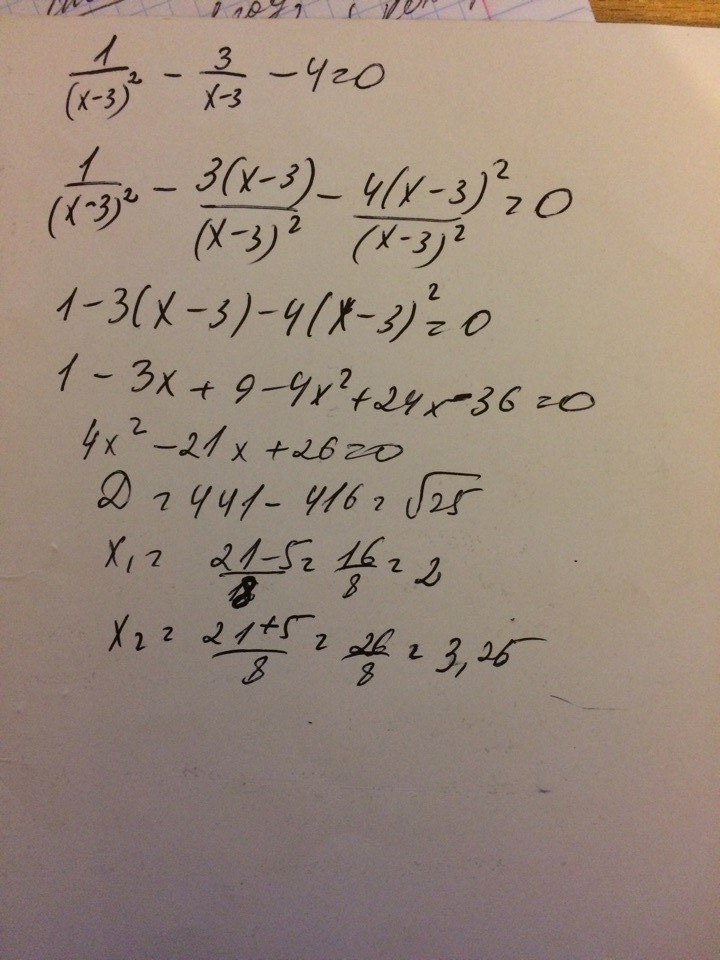 1/(x-3)² - 3/(x-3) - 4 = 0
1/(x-3)² - 3(x-3)/(x-3)² - 4(x-3)²/(x-3)² = 0
1 - 3(x-3) - 4(x-3)² = 0
1 - 3x + 9 - 4x² + 24x - 36 = 0
4x² - 21x + 26 = 0
D = 441 - 416 = √25
x₁ = (21-5)/8 = 16/8 = 2
x₂ = (21+5)/8 = 26/8 = 3,25